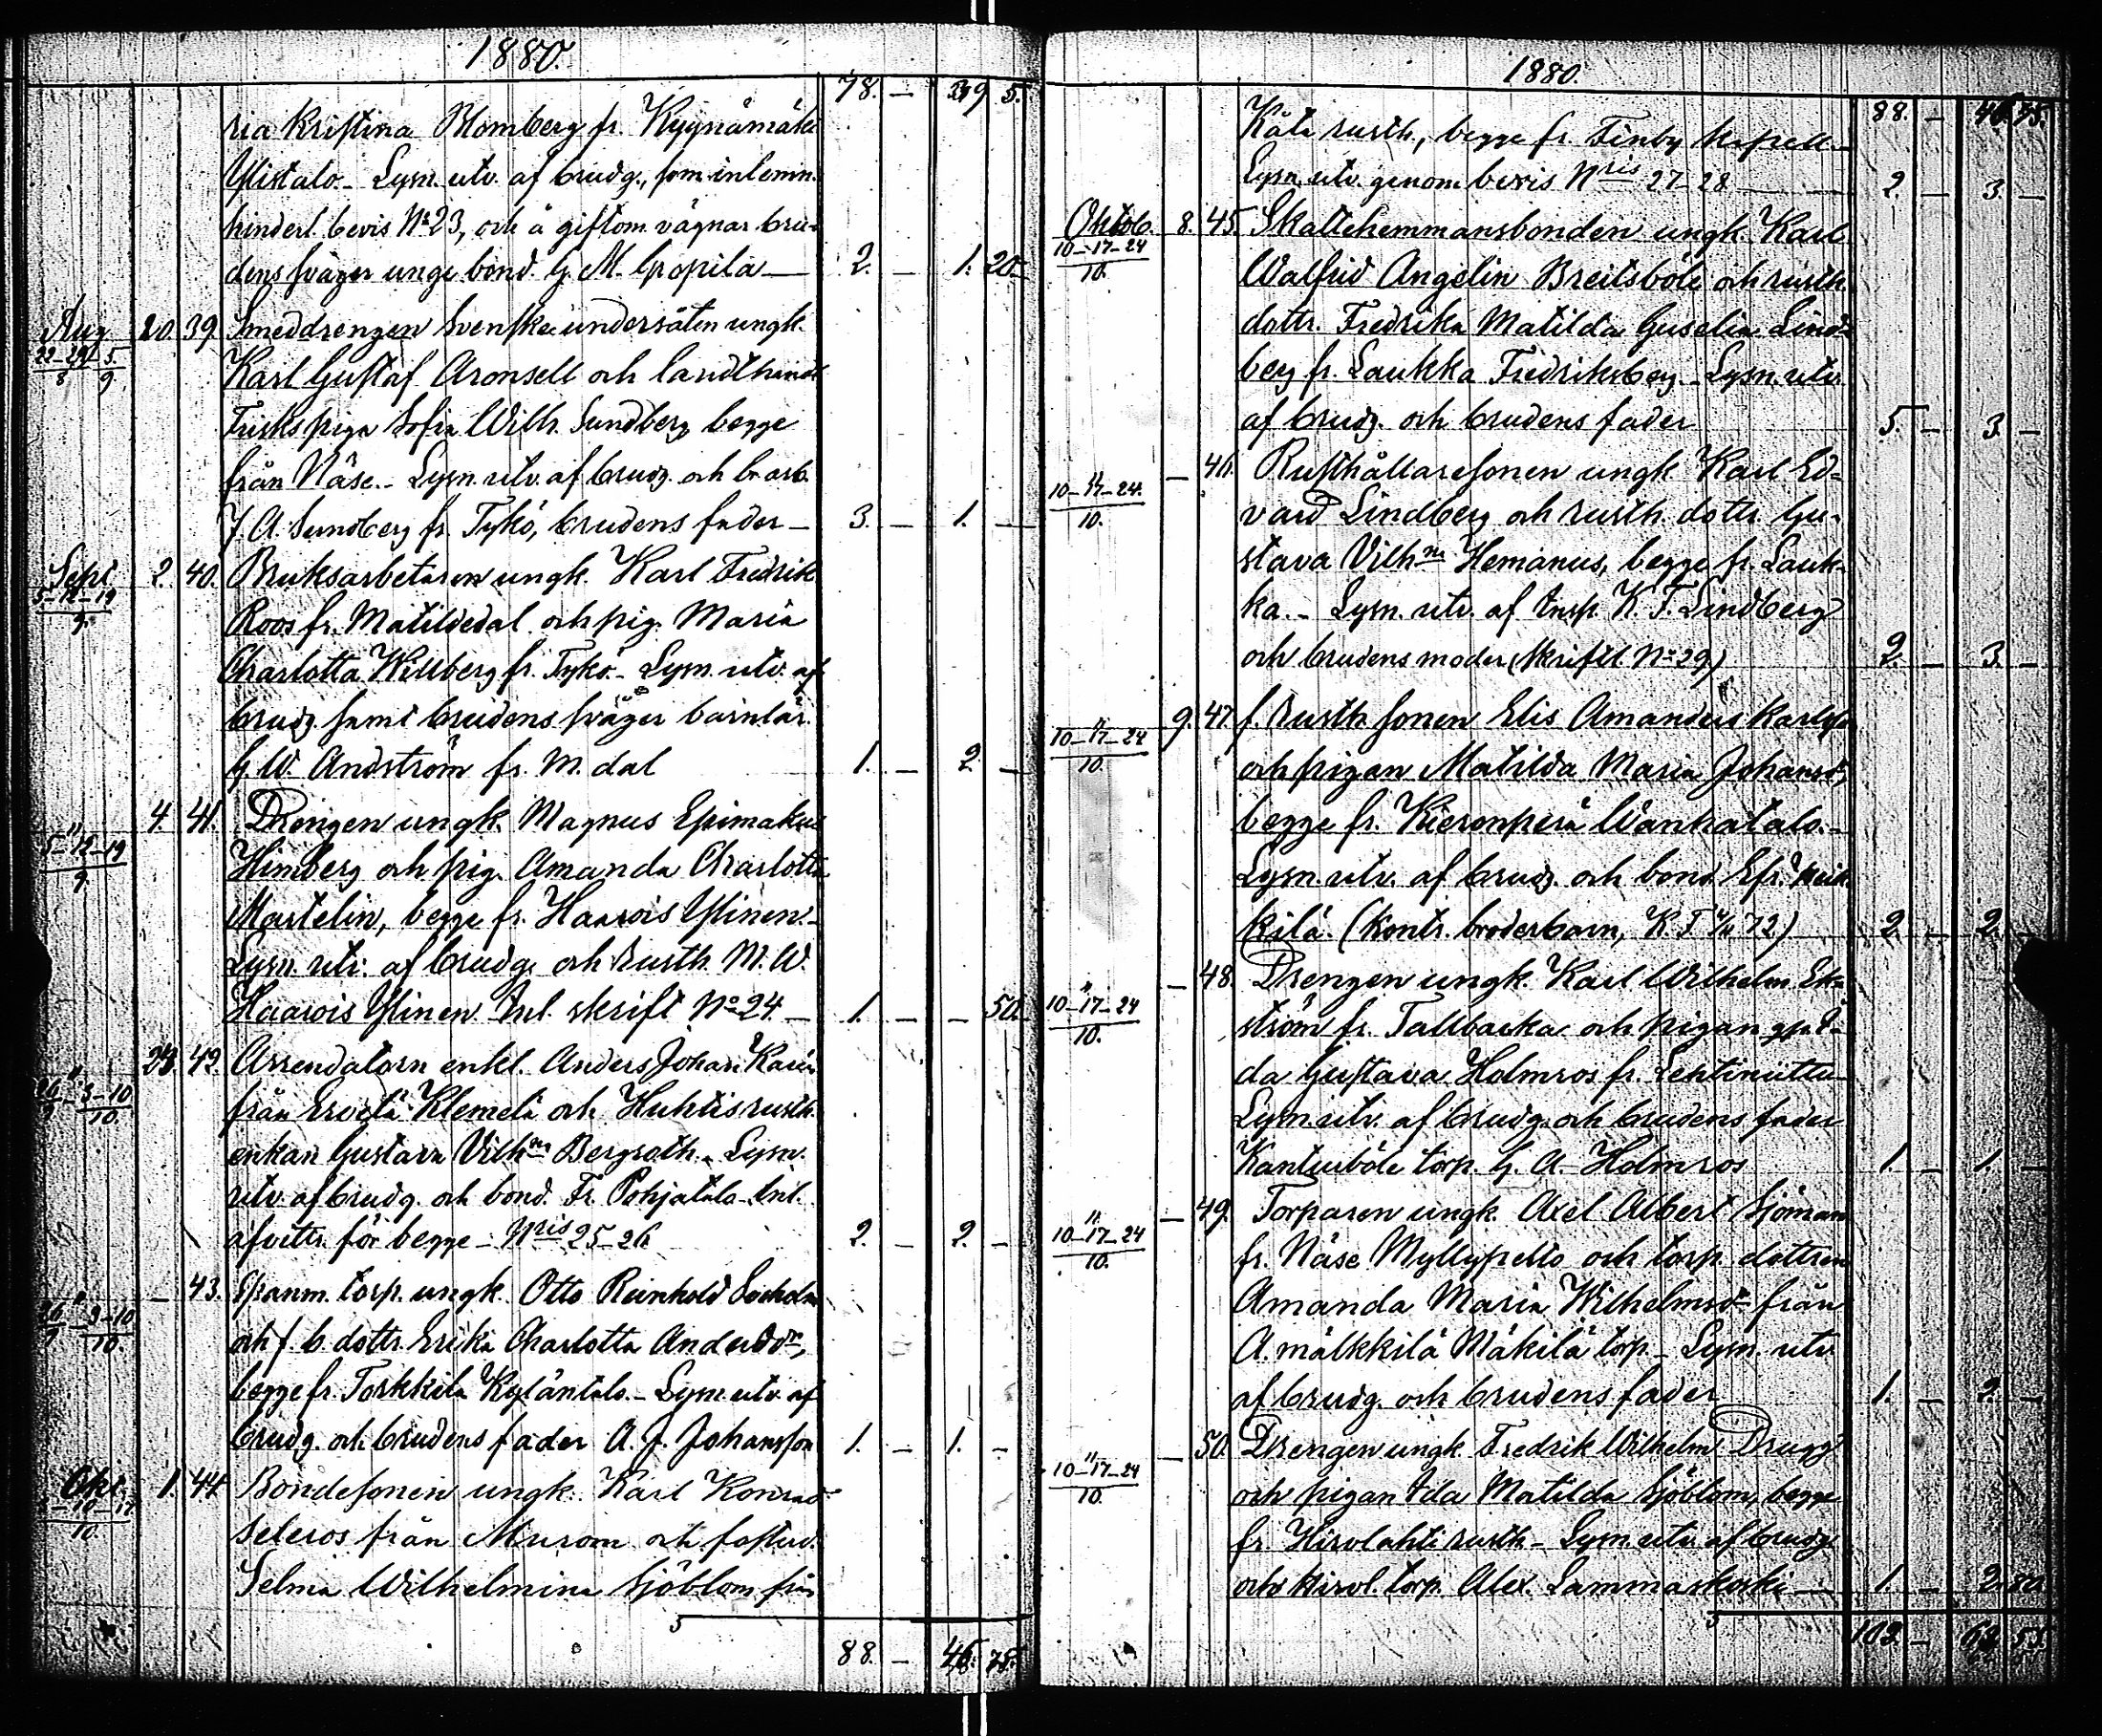 1880.
78. – 39 5.
ria Kristina Blomberg fr. Kyynämäki
Ylistalo – Lysn. utv. af brudg., som inlemn.
hinderl. bevis No 23, och å giftom. vägnar bru-
dens svåger unge bond. G. M. Uppila – 2. – 1. 20.
Aug. 20. 39. Smeddrengen Svenske undersåten ungk.
22–29/8 5/9 Karl Gustaf Aronsell och landthandl.
Frisks piga Sofia Wilh. Sundberg begge
från Näse. – Lysn. utv. af brudg. och br. arb.
J. A. Sundberg fr. Tykö, brudens fader – 3. – 1. –
Sept. 2. 40. Bruksarbetaren ungk. Karl Fredrik
5–12–19/9. Roos fr. Matildedal och pig. Maria
Charlotta Willberg fr. Tykö. – Lysn. utv. af
brudg. samt brudens svåger barnlär.
G. W. Andström fr. M. dal 1. – 2 –
" 4. 41. Drengen ungk. Magnus Epimakus
5–12–19/9 Himberg och pig. Amanda Charlotta
Martelin, begge fr. Haarois Ylinen. –
Lysn. utv. af brudg. och rusth. M. W.
Haarois Ylinen Inl. skrift No 24 – 1. – – 50.
" 42. Arrendatorn enkl. Anders Johan
26/9 – 3–10/10. från Ervelä Klemelä och Huhtis rusth.
enkan Gustava Vilh:na Bergroth. – Lysn.
utv. af brudg. och bond. Fr. Pohjatalo – Inl.
afvittr. för begge – Nris 25–26 2. – 2. –
" – 43. Spanm. torp. ungk. Otto Reinhold
26/9 – 3–10/10. och f. b. dottr. Erika Charlotta Andersd:r,
begge fr. Torkkila Kyläntalo. – Lysn. utv. af
brudg. och brudens fader A. J. Johansson 1. – 1. –
Okt. 1. 44. Bondesonen ungk. Karl Konrad
3–10–17/10. Seleros från Murom och fosterd.
Selma Wilhelmina Sjöblom från
88. – 46. 75.
1880.
88. – 46. 75.
Kåta rusth., begge fr. Finby kapell –
Lysn. utv. genom bevis Nris 27–28 – 2. – 3. –
Oktob. 8. 45. Skattehemmansbonden ungk. Karl
10–17–24/10. Walfrid Angelin Breitsböle och rusth.
dottr. Fredrika Matilda Guselia Lind-
berg fr. Laukka Fredriksberg. – Lysn. utv.
af brudg. och brudens fader 5. – 3. –
" – 46. Rusthållaresonen ungk. Karl Ed-
10–17–24./10. vard Lindberg och rusth. dottr. Gu-
stava Vilh:na Hemanus, begge fr. Lauk-
ka. – Lysn. utv. af insp. K. F. Lindberg
och brudens moder (skriftl. No 29) 2. – 3. –
" 9. 47. f. rusth. sonen Elis Amandus Karlsson
10–17–24/10. och pigan Matilda Maria Johansd:r,
begge fr. Kieronperä Wanhatalo. –
Lysn. utv. af brudg. och bond. Efr. Heik-
kilä. (Kontr. broderbarn, K. F. 72) 2. – 2. –
" – 48. Drengen ungk. Karl Wilhelm Ek-
10–17–24/10. ström fr. Tallbacka och pigan
da Gustava Holmros fr. Lehtiniittu
Lysn. utv. af brudg. och brudens fader
Kanturböle torp. G. A. Holmros 1. – 1. –
" – 49. Torparen ungk. Axel Albert Sjöman
10–17–24/10. fr. Näse Myllypelto och torp. dottren
Amanda Maria Wilhelmsd:r från
A. mälkkilä Mäkilä torp – Lysn. utv.
af brudg. och brudens fader 1. – 2. –
" – 50. Drengen ungk. Fredrik Wilhelm Drugg
10–17–24/10. och pigan Ida Matilda Sjöblom, begge
fr. Hirvlahti rusth. – Lysn. utv. af brudg.
och Hirvl. torp. Alex. Lammaskoski – 1. – 2. 80.